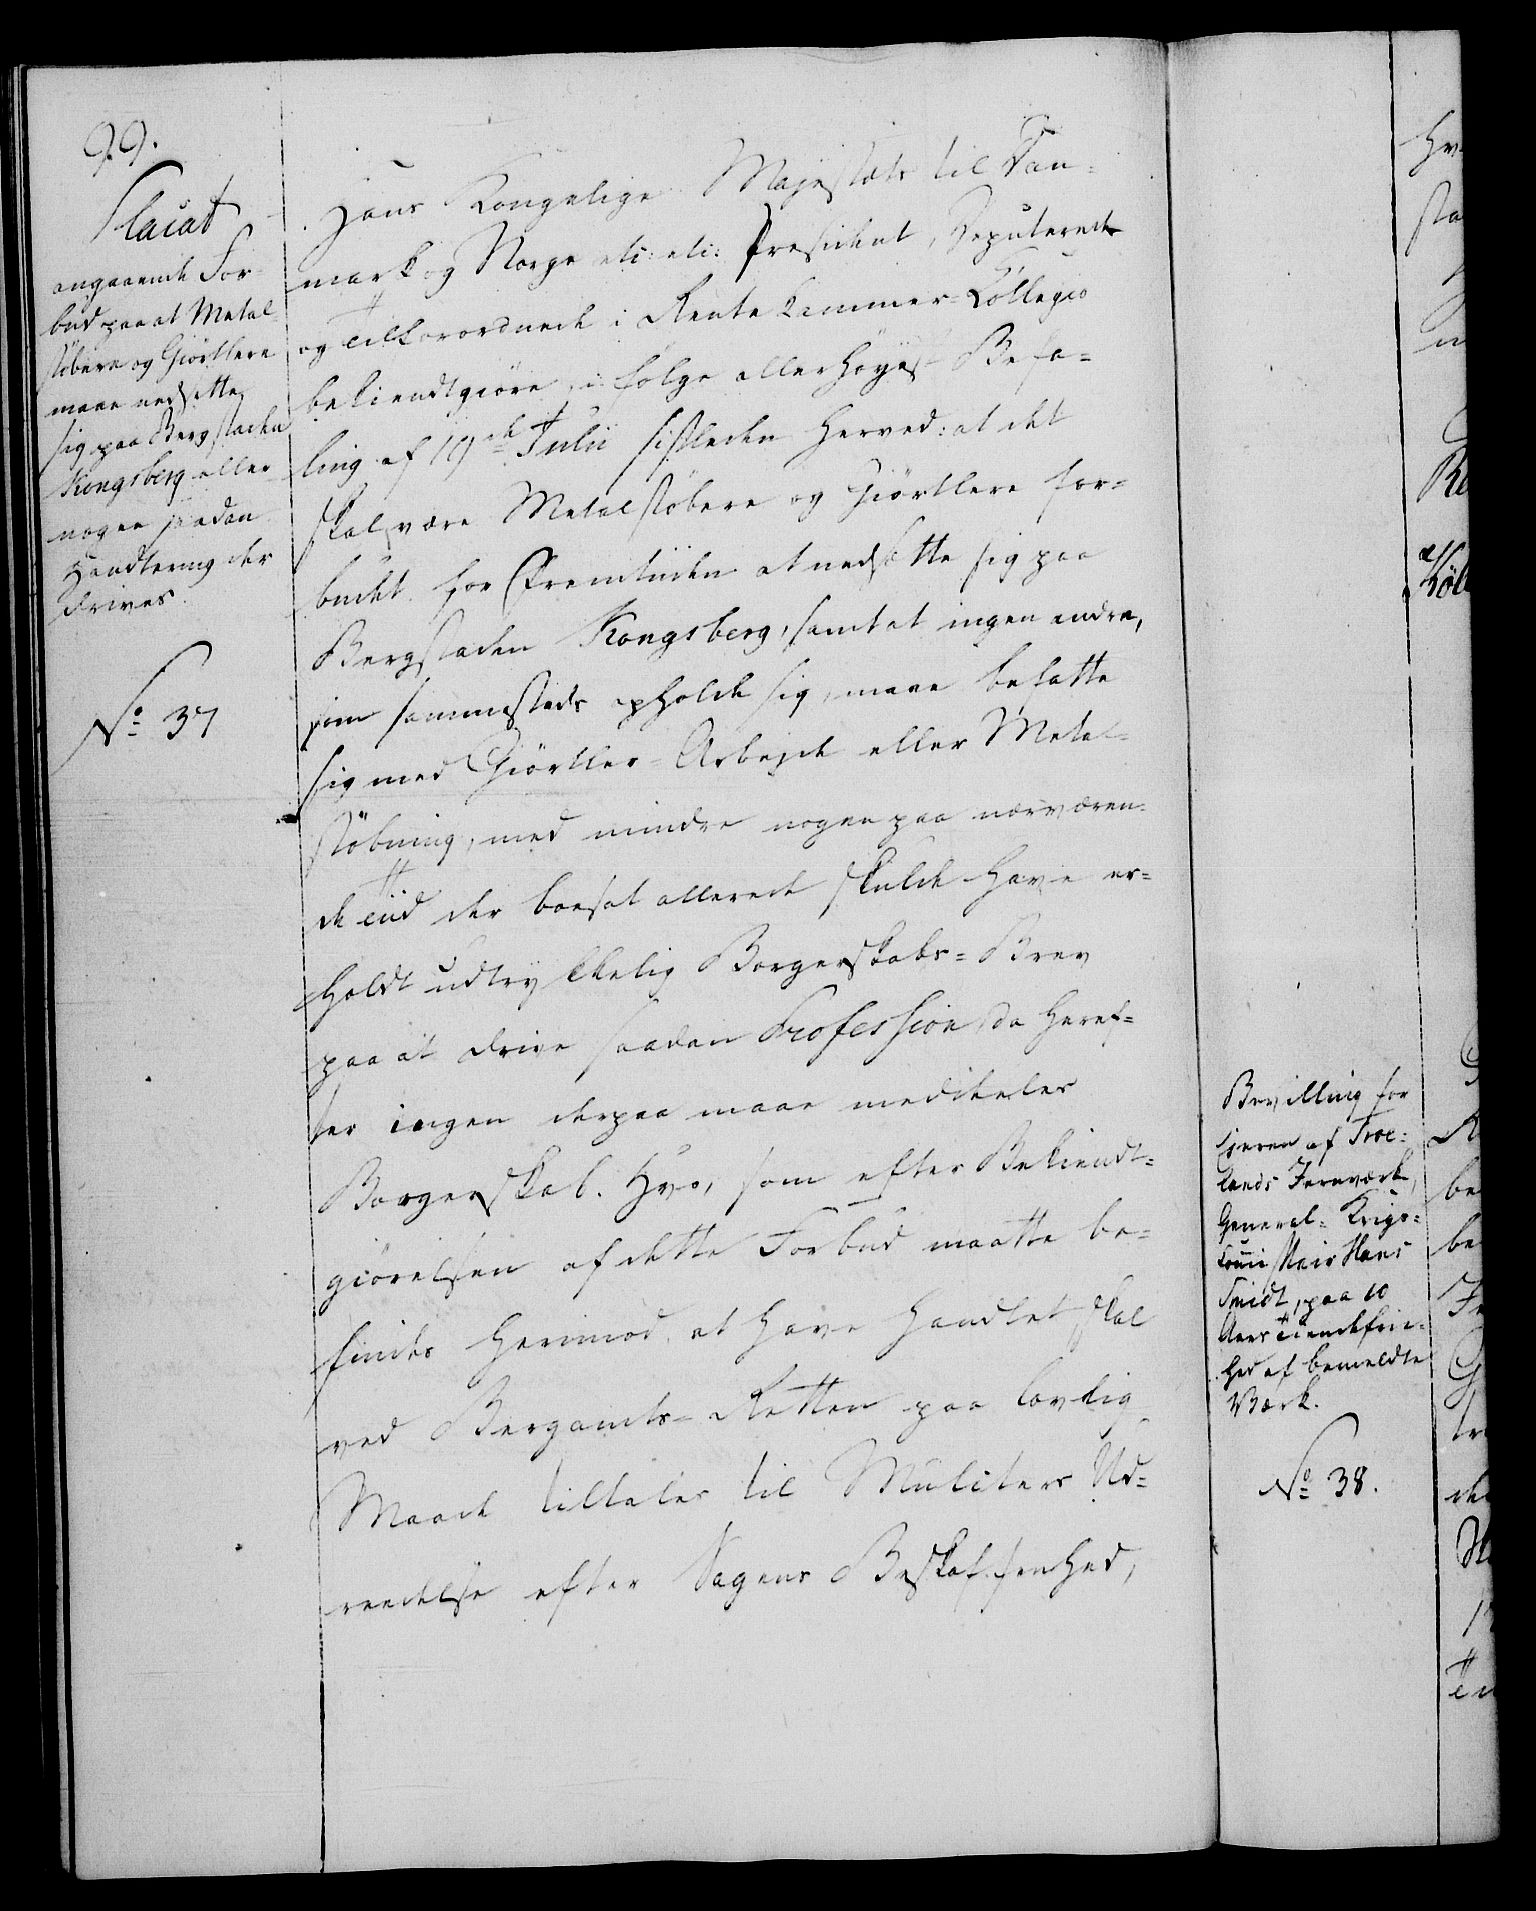 99.
Placat
angaaende For-
bud paa at Metal-
støbere og Giørtlere
maae nedsætte
sig paa Bergstaden
Kongsberg eller
nogen saadan
Handtering der
drives.
No 37
Hans Kongelige Majestæts til Dan-
mark og Norge etc: etc: Præsident, Deputerede
og Tilforordnede i Rente Kammer-Collegio
bekiendtgiøre, i følge allerhøyest Befa-
ling af 19de Julii sidstleden herved: at det
skal være Metalstøbere og Giørtlere for-
budet for Fremtiiden at nedsætte sig paa
Bergstaden Kongsberg, samt at ingen andre,
som sammesteds opholde sig, maae befatte
sig med Giørtler-Arbejde eller Metal-
støbning, med mindre nogen paa nærværen-
de Tiid der boesat allerede skulde have er-
holdt udtrykkelig Borgerskabs-Brev
paa at drive saadan Profession, da heref-
ter ingen derpaa maae meddeeles
Borgerskab. Hvo, som efter Bekiendt-
giørelsen af dette Forbud maatte be-
findes herimod at have handlet, skal
ved Bergamts-Retten paa lovlig
Maade tiltales til Mulcters Ud-
reedelse efter Sagens Beskaffenhed,
Bevilling for
Ejeren af Froe-
lands Jernværk,
General-Krigs-
Commissair Hans
Smidt, paa 10
Aars Tiendefrie-
hed af bemeldte
Værk.
No 38.